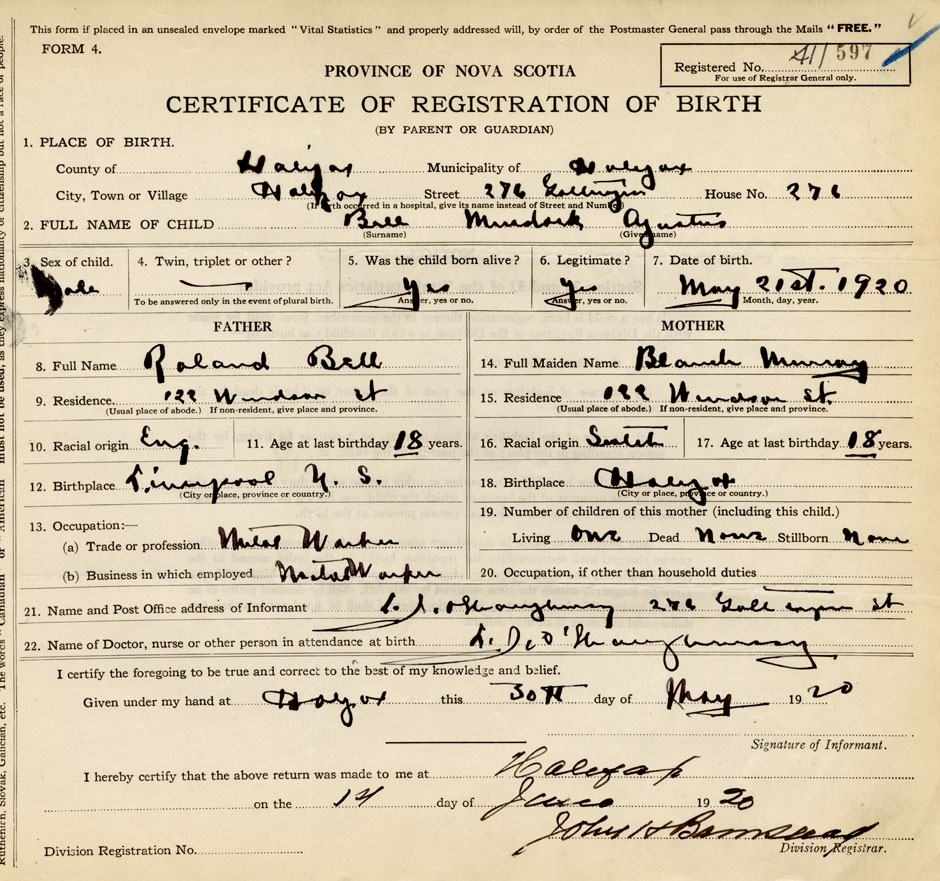 This form if placed in an unsealed envelope marked "Vital Statistics" and properly addressed will, by order of the Postmaster General pass through the Mails "FREE."
FORM 4.
Registered No. 41/597
For use of Registrar General only.
PROVINCE OF NOVA SCOTIA
CERTIFICATE OF REGISTRATION OF BIRTH
(BY PARENT OR GUARDIAN)
1. PLACE OF BIRTH.
County of Halifax Municipality of Halifax
City, Town or Village Halifax Street 276 House No. 276
(If birth occurred in a hospital, give its name instead of Street and Number)
2. FULL NAME OF CHILD Bell Murdock Agustus
(Surname) (Given name)
3. Sex of child. 4. Twin, triplet or other? 5. Was the child born alive? 6. Legitimate? 7. Date of birth.
Male — Yes Yes May 21st. 1920
To be answered only in the event of plural birth. Answer, yes or no. Answer, yes or no. Month, day, year.
FATHER
8. Full Name Roland Bell
9. Residence 122 Windsor St
(Usual place of abode.) If non-resident, give place and province.
10. Racial origin Eng. 11. Age at last birthday 18 years.
12. Birthplace Liverpool N. S.
(City or place, province or country.)
13. Occupation:—
(a) Trade or profession Metal Worker
(b) Business in which employed Metal Worker
MOTHER
14. Full Maiden Name Blanch Murray
15. Residence 122 Windsor St.
(Usual place of abode.) If non-resident, give place and province.
16. Racial origin 17. Age at last birthday 18 years.
18. Birthplace Halifax
(City or place, province or country.)
19. Number of children of this mother (including this child.)
Living One Dead None Stillborn None
20. Occupation, if other than household duties
21. Name and Post Office address of Informant 276 St
22. Name of Doctor, nurse or other person in attendance at birth
I certify the foregoing to be true and correct to the best of my knowledge and belief.
Given under my hand at Halifax this 30th day of May 1920
Signature of Informant.
I hereby certify that the above return was made to me at Halifax
on the 1st day of June 1920
John H
Division Registration No. Division Registrar.
must not be used, as they express nationality or citizenship but not a race of people.
Ruthenian, Slovak, Galician, etc. The words "Canadian" or "American"